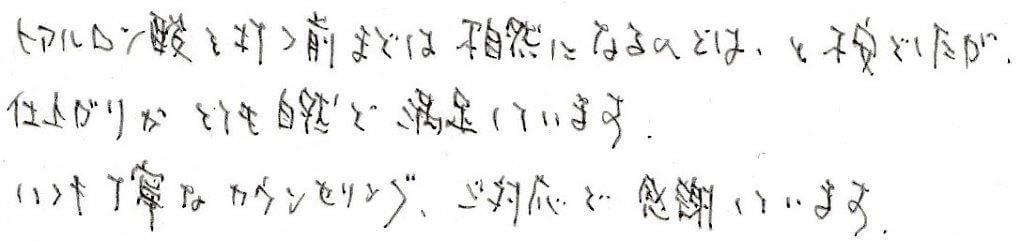 ヒアルロン酸を打つ前までは不自然になるのでは、と不安でしたが、
仕上がりがとても自然で満足しています。
いつも丁寧なカウンセリング、ご対応で感謝しています。